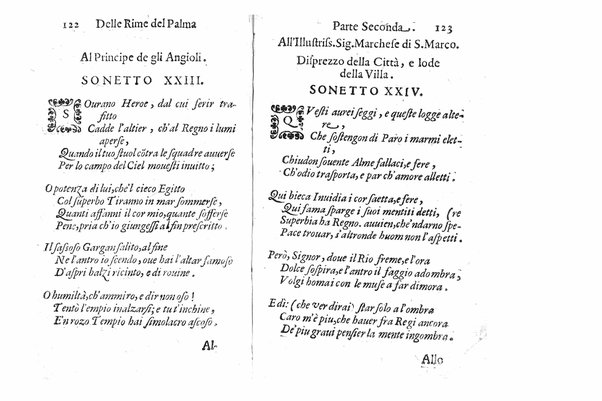 122 Delle Rime del Palma
Al Principe de gli Angioli.
SONETTO XXIII.
SOurano Heroe, dal cui ferir trafitto
Cadde l'altier, ch'al Regno i lumi
aperse,
Quando il tuo stuol cõtra le squadre auuerse
Per lo campo del Ciel mouesti inuitto;
O potenza di lui, ch'el cieco Egitto
Col superbo Tiranno in mar sommerse,
Quanti affanni il cor mio, quante sofferse
Pene, pria ch'io giungessi al fin prescritto.
Il sassoso Gargan salito, al fine
Ne l'antro io scendo, oue hai l'altar famoso
D'aspri balzi ricinto, e di rouine.
O humiltà, ch'ammiro, e dir non oso!
Tentò l'empio inalzarsi; e tu t'inchine,
En rozo Tempio hai simolacro ascoso.
Al-
Parte Seconda. 123
All'Illustriss. Sig. Marchese di S. Marco.
Disprezzo della Città, e lode
della Villa.
SONETTO XXIV.
QVesti aurei seggi, e queste logge altere,
Che sostengon di Paro i marmi eletti,
Chiudon souente Alme fallaci, e fere,
Ch'odio trasporta, e par ch'amore alletti.
Qui bieca Inuidia i cor saetta, e fere,
Qui fama sparge i suoi mentiti detti, (re
Superbia ha Regno. auuien, che'ndarno spe-
Pace trouar, s'altronde huom non l'aspetti.
Però, Signor, doue il Rio freme, e l'ora
Dolce sospira, e l'antro il faggio adombra,
Volgi homai con le muse a far dimora.
E di: (che ver dirai) star solo a l'ombra
Caro m'è piu, che hauer fra Regi ancora
De' piu graui pensier la mente ingombra.
Allo